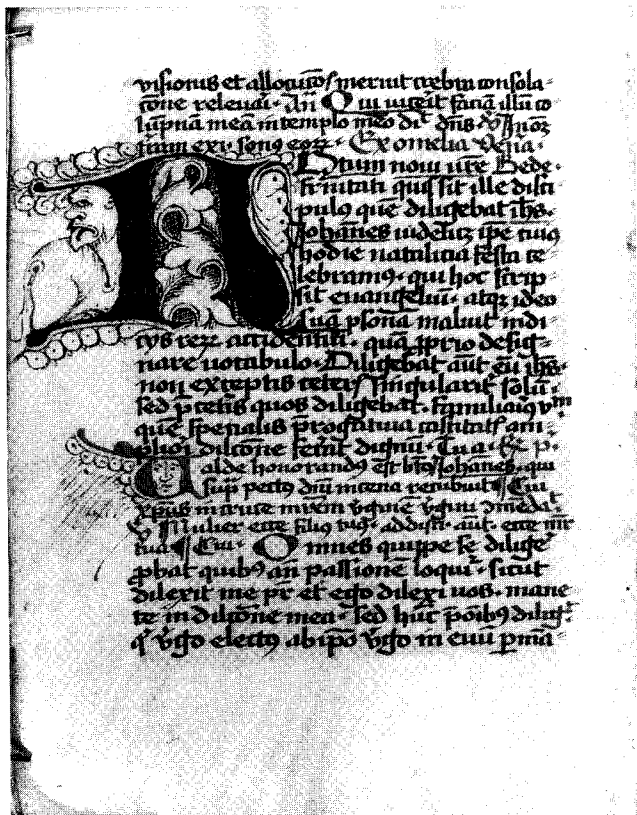 visionis et allocucōis meruit crebra consola-
cōne relevari. Añ Qui vicerit faciā illū co
lūpnā meā in templo meo dic̄ dn̄s v̄ In oēz
terram exi. sonꝰ eoꝝ. Ex omelia Ven̄a.
Notum novi ure Bede.
fr̄nitati quis sit ille disci
pulꝰ quē diligebat ih̄s.
Johānes videlicꝫ ipe cuiꝰ
hodie natalicia festa ce
lebramꝰ. qui hoc scrip
sit evangeliū. atqꝫ ideo
suā p̄sonā maluit indi
cijs reꝝ accidentiū. quā ꝓprio desig-
nare vocabulo. Diligebat aūt eū ih̄s.
non exceptis ceteris singularit̄ solū.
sed p̄ ceteris quos diligebat. familiariꝰ vnū
quē specialis p̄rogativa castitatis am-
pliori dilcōne fecat̄ dignū. Tu a. R̄ p̄.
Valde honorandꝰ est bt̄ꝰ Johānes. qui
sup̄ pectꝰ dn̄i in cena recubuit Cui
xp̄us in cruce mr̄em v̄ginē v̄gini 9medaꝰt
v̄ Mulier ecce filiꝰ tuꝰ. ad disc̄i. aūt. ecce mr̄
tua Cui. Omnes quippe se dilige
ꝓbat quibꝰ añ passione loquiꝰ. sicut
dilexit me pr̄ et ego dilexi uos. mane
te in dilcōne mea. sed hūc p̄ oībꝰ diliḡ.
qꝰ v̄go electꝰ ab ipō v̄go in evū p̄mā-